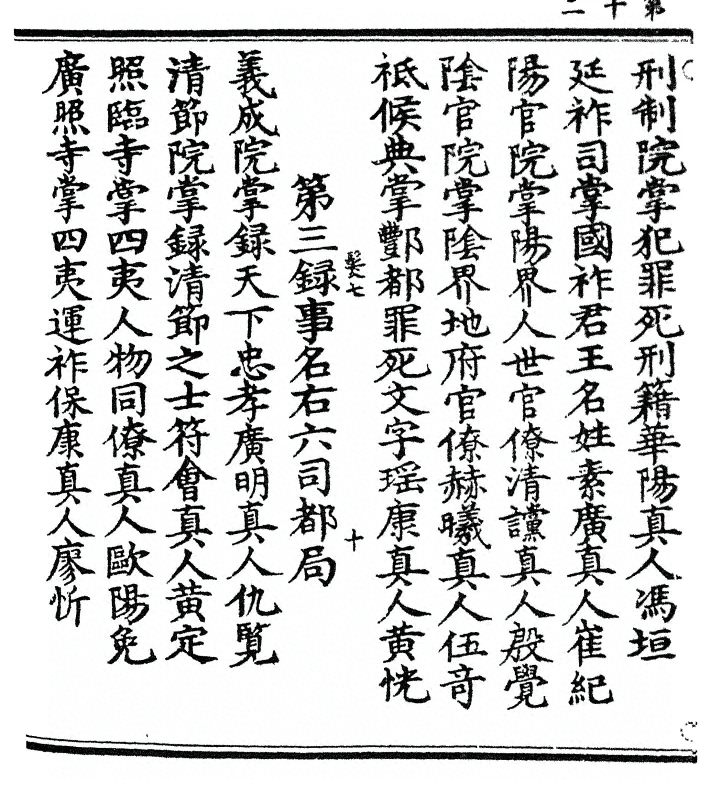 第十二
刑制院掌犯罪死刑籍華陽真人馮垣
延祚司掌國祚君王名姓素廣真人崔紀
陽官院掌陽界人世官僚清讜真人殷覺
陰官院掌陰界地府官僚赫曦真人伍奇
祗候典掌酆都罪死文字瑶康真人黄恍
髮七 十
第三録事名右六司都局
義成院掌録天下忠孝廣明真人仇覧
清節院掌録清節之士符會真人黄定
照臨寺掌四夷人物同僚真人歐陽免
廣照寺掌四夷運祚保康真人廖忻